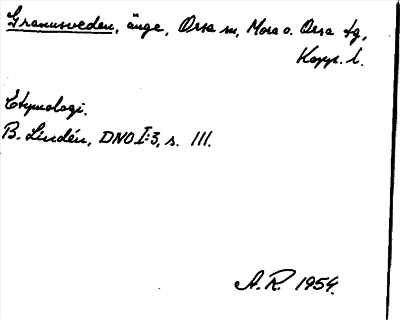 Granusveden, änge, Orsa sn, Mora o. Orsa tg,
Kopp. l.
Etymologi.
B. Lindén, DNO I:3, s. 111.
A.R. 1954.